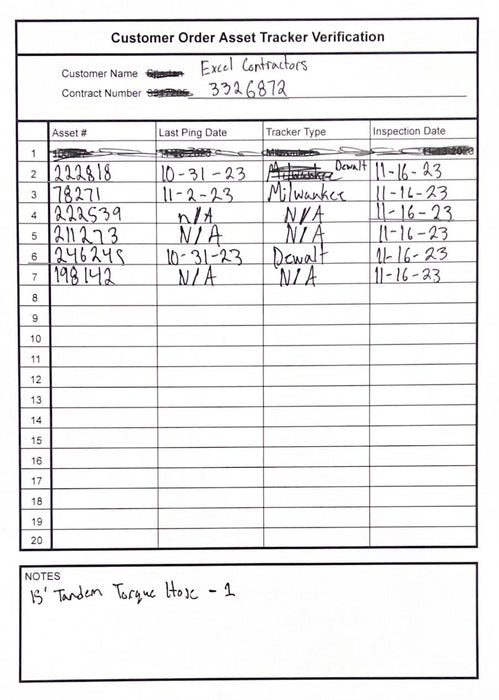 Customer Order Asset Tracker Verification
Customer Name Excel Contractors
Contract Number 3326872
Asset # Last Ping Date Tracker Type Inspection Date
1
2 222818 10-31-23 Dewalt 11-16-23
3 78271 11-2-23 Milwaukee 11-16-23
4 222539 n/A N/A 11-16-23
5 211273 N/A N/A 11-16-23
6 246245 10-31-23 Dewalt 11-16-23
7 198142 N/A N/A 11-16-23
8
9
10
11
12
13
14
15
16
17
18
19
20
NOTES
15' Tandem Torque Hose - 1